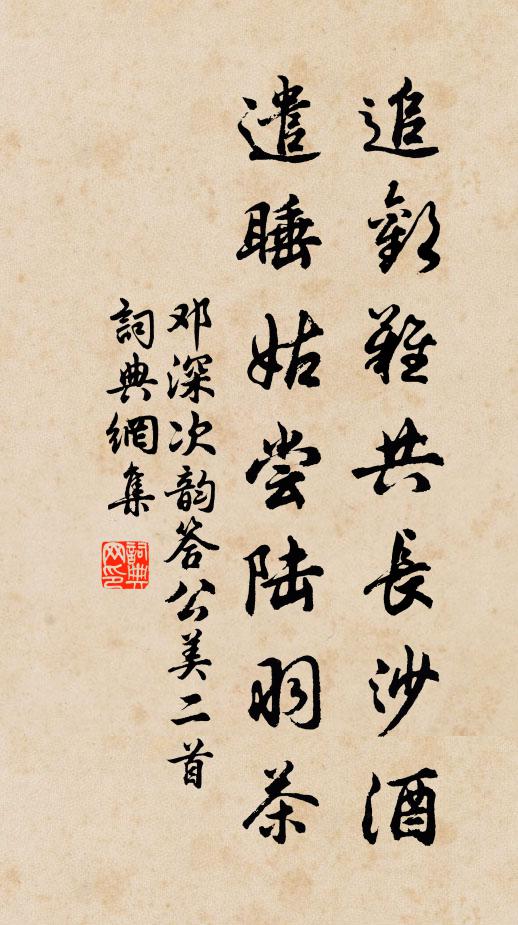 追歡難共長沙酒
遣睡姑尝陆羽茶
邓深次韵答公美二首
詞典網集
詞典网印